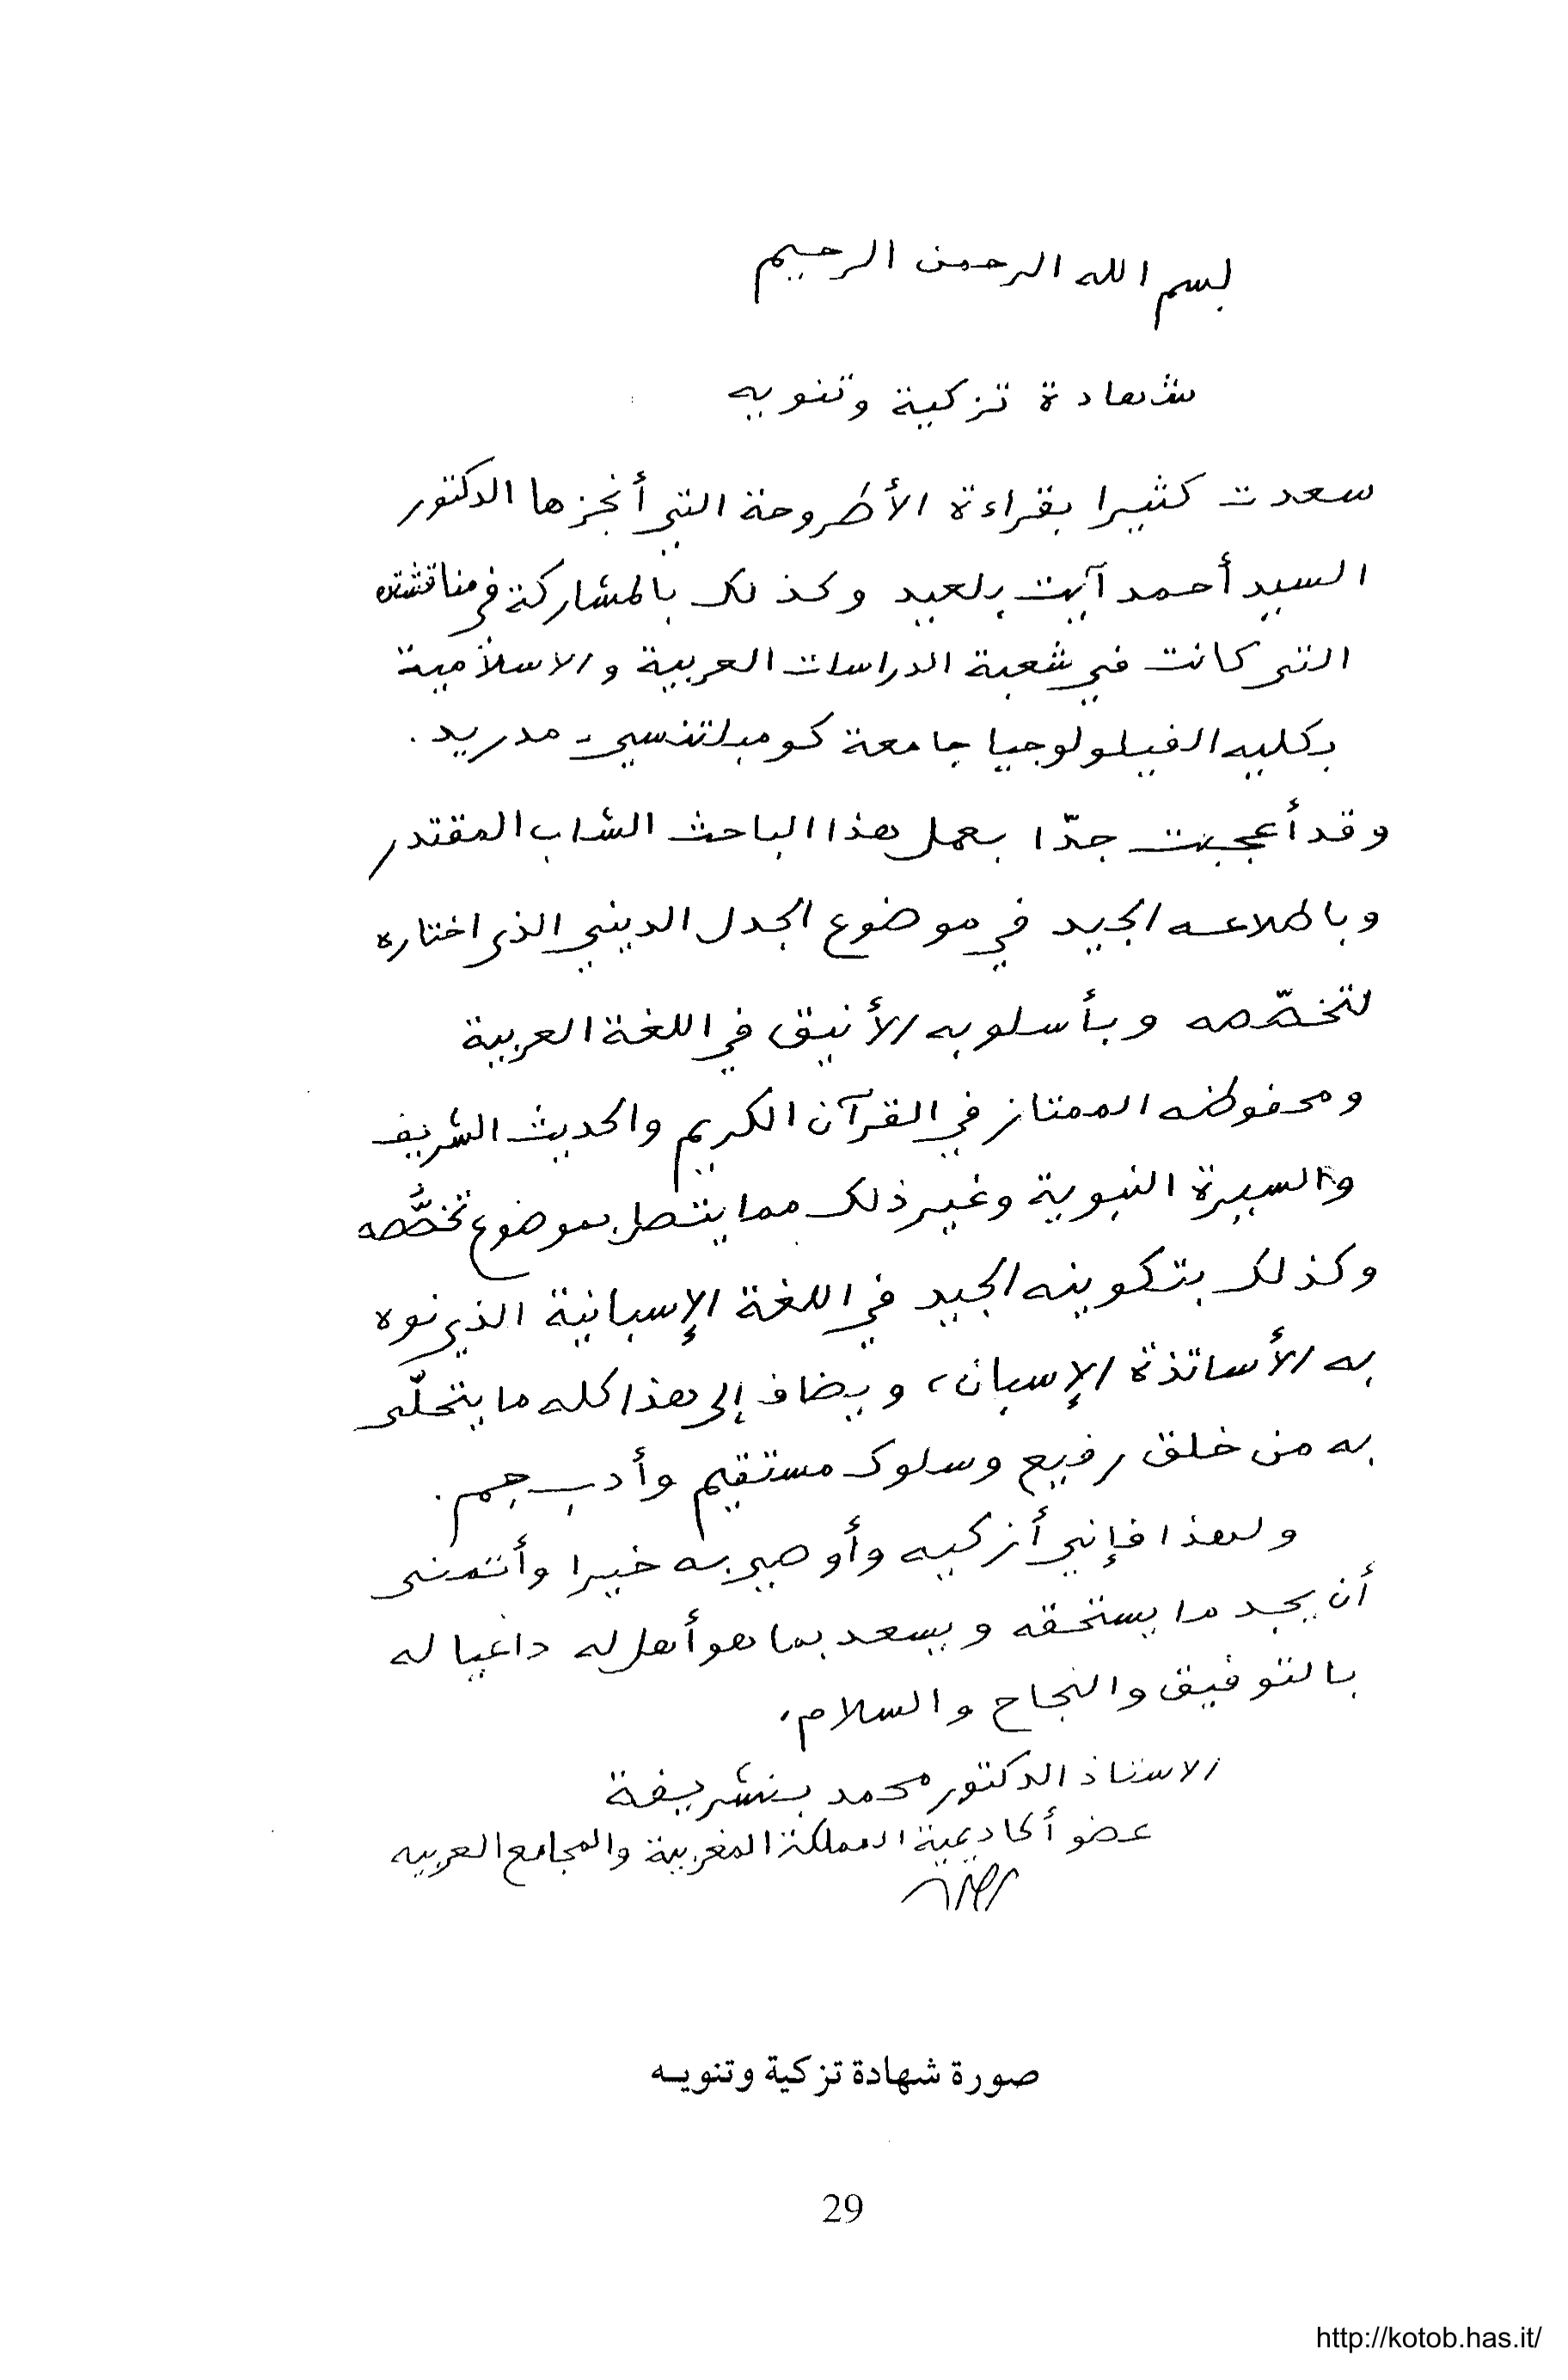 بسم الله الرحمن الرحيم
شهادة تزكية وتنويه
سعدت كثيرا بقراءة الأطروحة التي أنجزها الدكتور
السيد أحمد آيت بلعيد وكذلك بالمشاركة في مناقشته
التي كانت في شعبة الدراسات العربية والاسلامية
بكليه الفيلولوجيا جامعة كومبلتنسي - مدريد .
وقد أعجبت جدّا بعمل هذا الباحث الشاب المقتدر
وباطلاعه الجيد في موضوع الجدل الديني الذي اختاره
لتخصّصه وبأسلوبه الأنيق في اللغة العربية
ومحفوظه الممتاز في القرآن الكريم والحديث الشريف
والسيرة النبوية وغير ذلك مما يتصل بموضوع تخصُّصه
وكذلك بتكوينه الجيد في اللغة الإسبانية الذي نوه
به الأساتذة الإسبان، ويضاف إلى هذا كله ما يتحلّى
به من خلق رفيع وسلوك مستقيم وأدب جم .
ولهذا فإني أزكيه وأوصي به خيرا وأتمنى
أن يجد ما يستحقه ويسعد بما هو أهل له داعيا له
بالتوفيق والنجاح والسلام،
الاستاذ الدكتور محمد بنشريفة
عضو أكاديمية المملكة المغربية والمجامع العربيه
صورة شهادة تزكية وتنويـه
29
http://kotob.has.it/